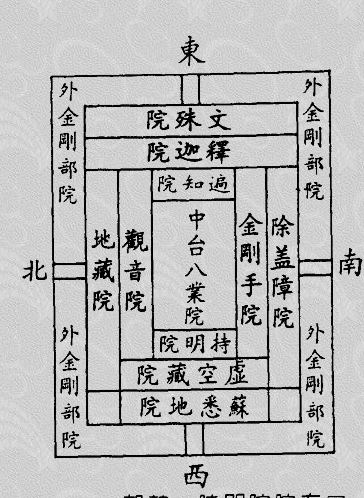 東
外金剛部院
外金剛部院
院殊文
院迦釋
院知遍
地藏院
觀音院
中台八業院
金剛手院
除盖障院
北
南
院明持
院藏空虛
院地悉蘇
外金剛部院
外金剛部院
西